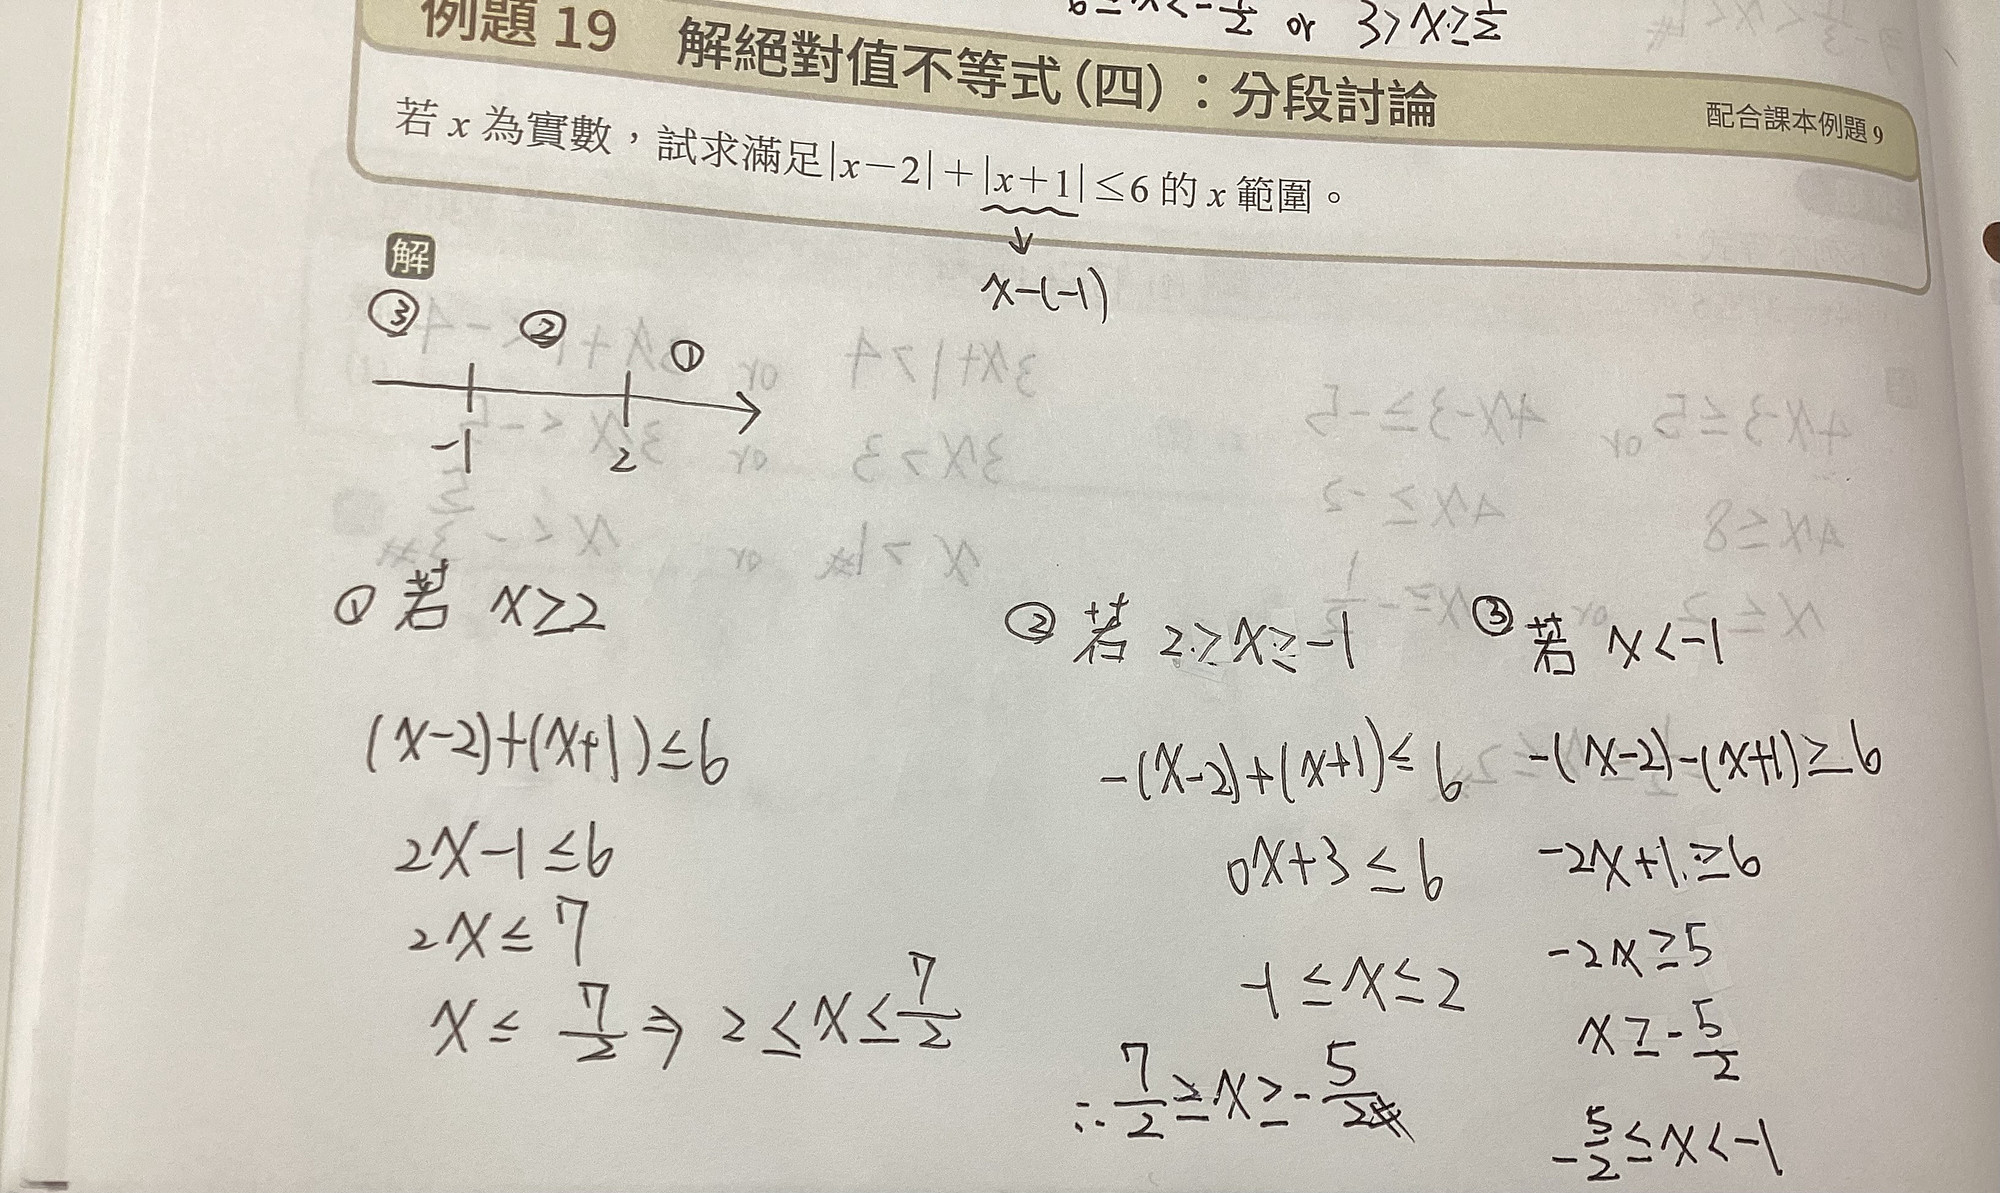 6≥x<-1/2 or 3>x≥1/2
例題 19 解絕對值不等式(四)：分段討論
配合課本例題 9
若 x 為實數，試求滿足|x－2|＋|x＋1|≤6 的 x 範圍。
↓
x-(-1)
解
③ ② ①
-1 2
① 若 x≥2
(x-2)+(x+1)≤6
2x-1≤6
2x≤7
x≤7/2⇒2≤x≤7/2
② 若 2≥x≥-1
-(x-2)+(x+1)≤6
0x+3≤6
-1≤x≤2
∴7/2≥x≥-5/2#
③ 若 x<-1
-(x-2)-(x+1)≥6
-2x+1≥6
-2x≥5
x≥-5/2
-5/2≤x<-1